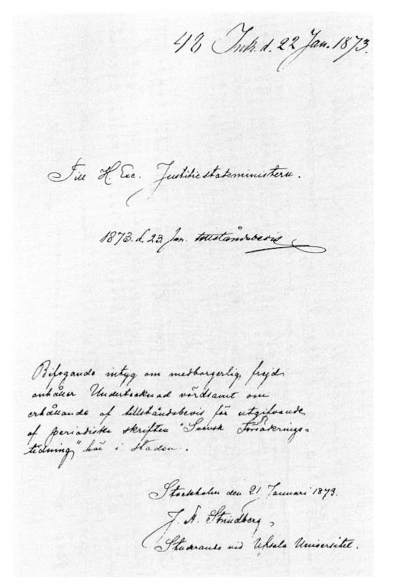 48 Ink. d. 22 Jan. 1873.
Till H Exc. Justitiestatsministern.
1873. d. 23 Jan. tillståndsbevis
Bifogande intyg om medborgerlig frejd
anhåller Undertecknad vördsamt om
erhållande af tillståndsbevis för utgifvande
af periodiska skriften "Svensk Försäkrings-
tidning," här i staden.
Stockholm den 21 Januari 1873.
J. A. Strindberg,
Studerande vid Upsala Universitet.